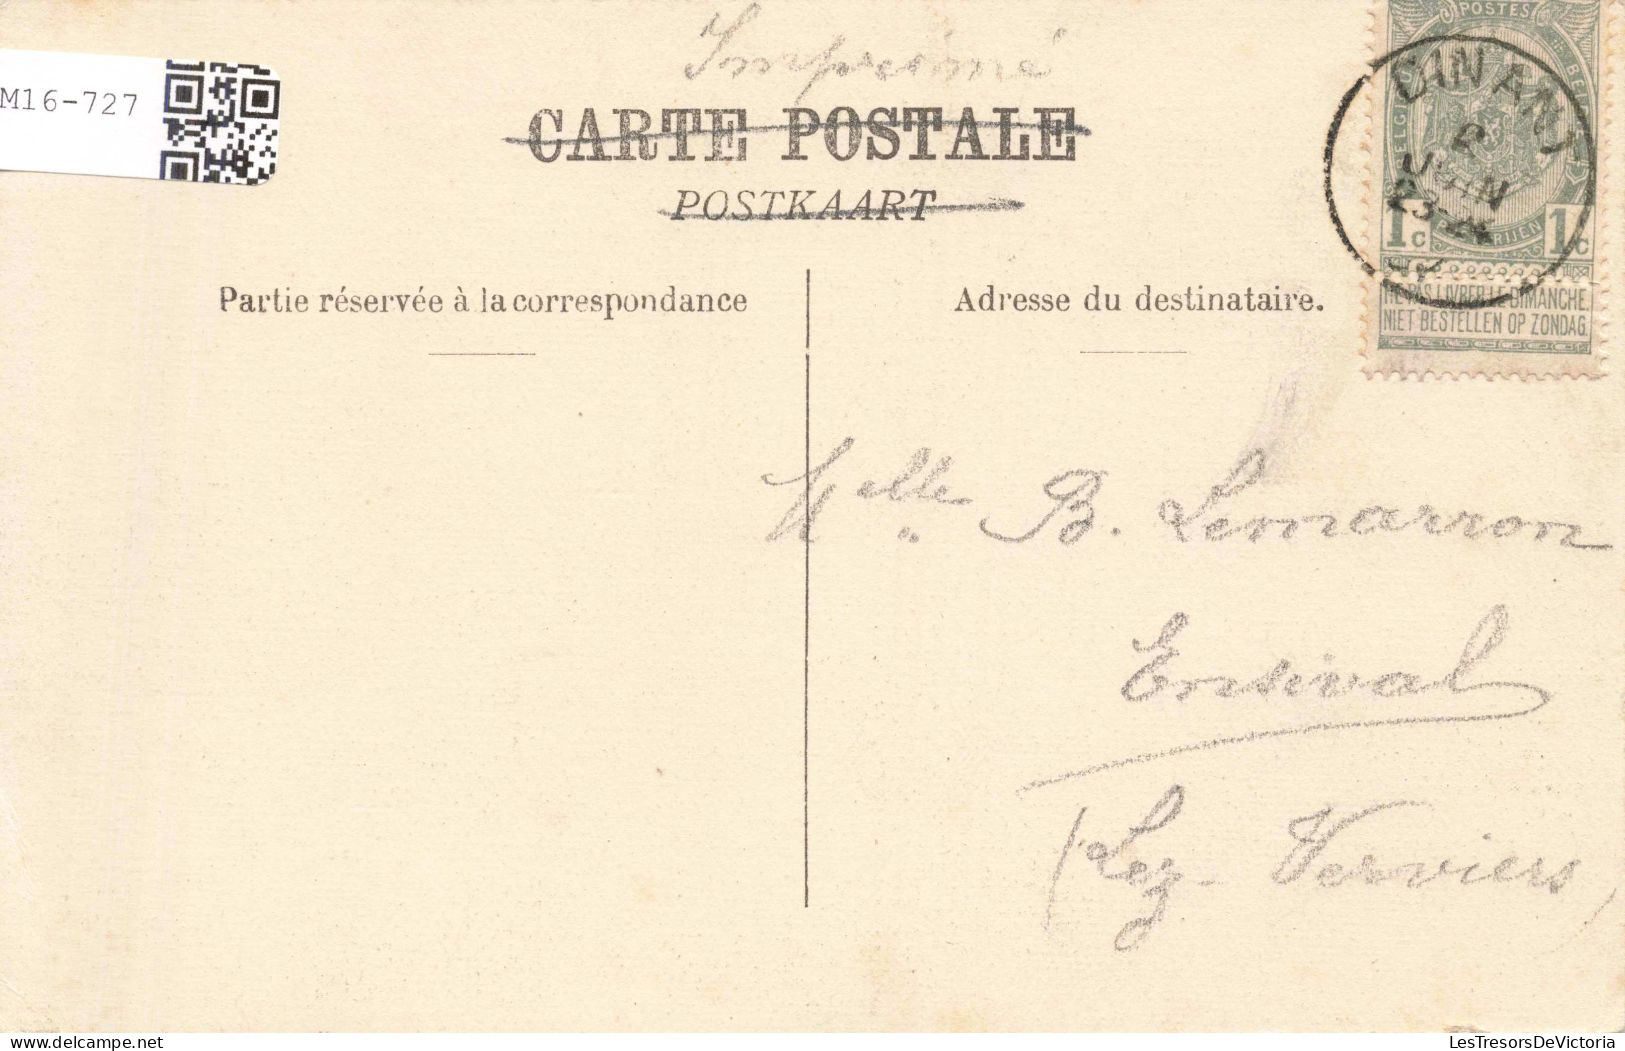 Imprimé
M16-727
CARTE POSTALE
POSTKAART
POSTES
DINANT
2
JUIN
23-24
1c 1c
NE PAS LIVRER LE DIMANCHE
NIET BESTELLEN OP ZONDAG
Partie réservée à la correspondance
Adresse du destinataire.
Melle B. Lemarron
Ensival
(Lez-Verviers)
LesTresorsDeVictoria
delcampe.net